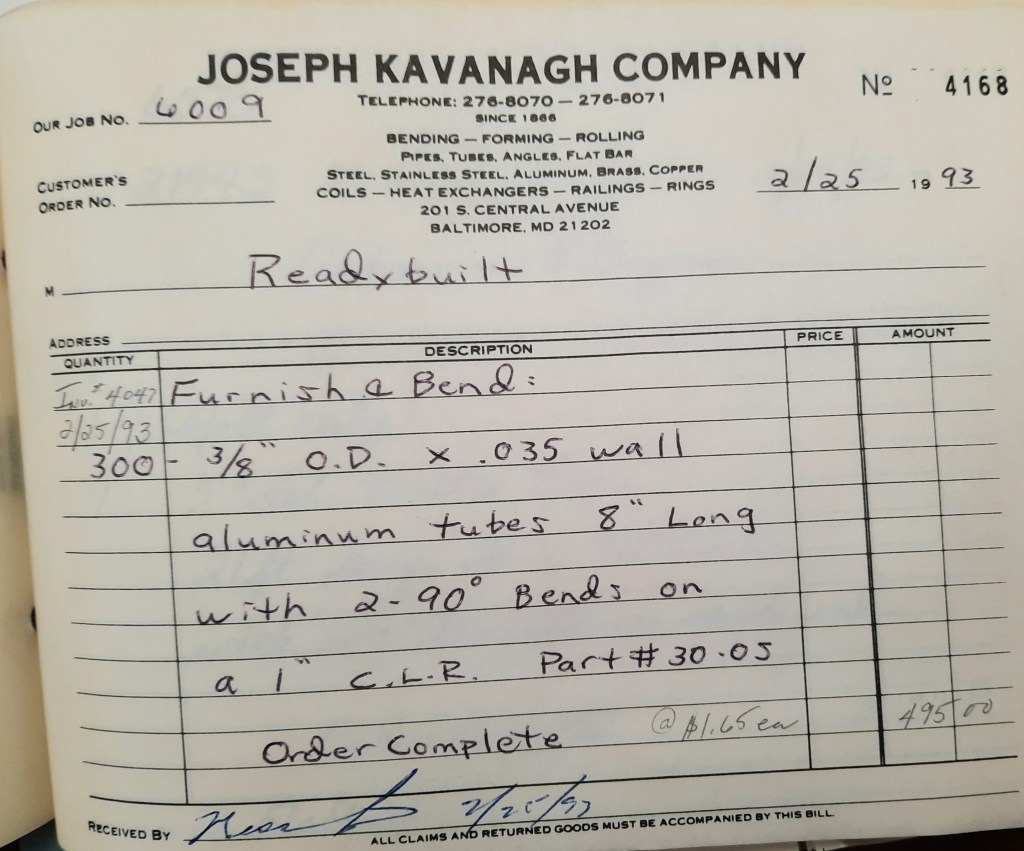 JOSEPH KAVANAGH COMPANY
Nº 4168
TELEPHONE: 276-8070 — 276-8071
SINCE 1866
OUR JOB NO. 6009
BENDING — FORMING — ROLLING
PIPES, TUBES, ANGLES, FLAT BAR
STEEL, STAINLESS STEEL, ALUMINUM, BRASS, COPPER
CUSTOMER'S
ORDER NO.
COILS — HEAT EXCHANGERS — RAILINGS — RINGS
2/25 1993
201 S. CENTRAL AVENUE
BALTIMORE, MD 21202
M Readybuilt
ADDRESS
QUANTITY DESCRIPTION PRICE AMOUNT
Inv.# 4047 Furnish & Bend:
2/25/93
300 - 3/8" O.D. x .035 wall
aluminum tubes 8" Long
with 2-90° Bends on
a 1" C.L.R. Part# 30-05
Order Complete @ $1.65 ea 495 00
RECEIVED BY 2/25/93
ALL CLAIMS AND RETURNED GOODS MUST BE ACCOMPANIED BY THIS BILL